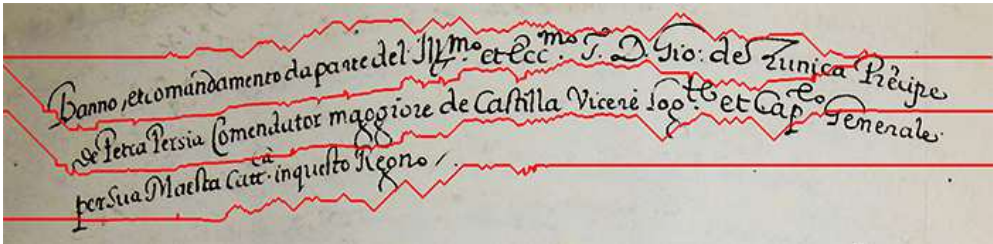 Banno, et comandamento da parte del Ill.mo et Ecc.mo S. D. Gio: de Zunica Prēcipe
de Petra Persia Comendator maggiore de Castilla Vicerè Log.te et Cap.o Generale
per Sua Maestà Catt.ca in questo Regno /.